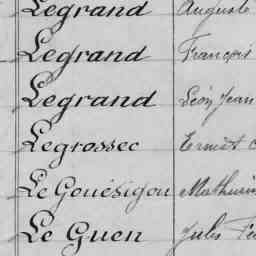 Legrand Auguste
Legrand François
Legrand Léon Jean
Legrossec Ernest
Le Gouésigou Mathurin
Le Guen Jules